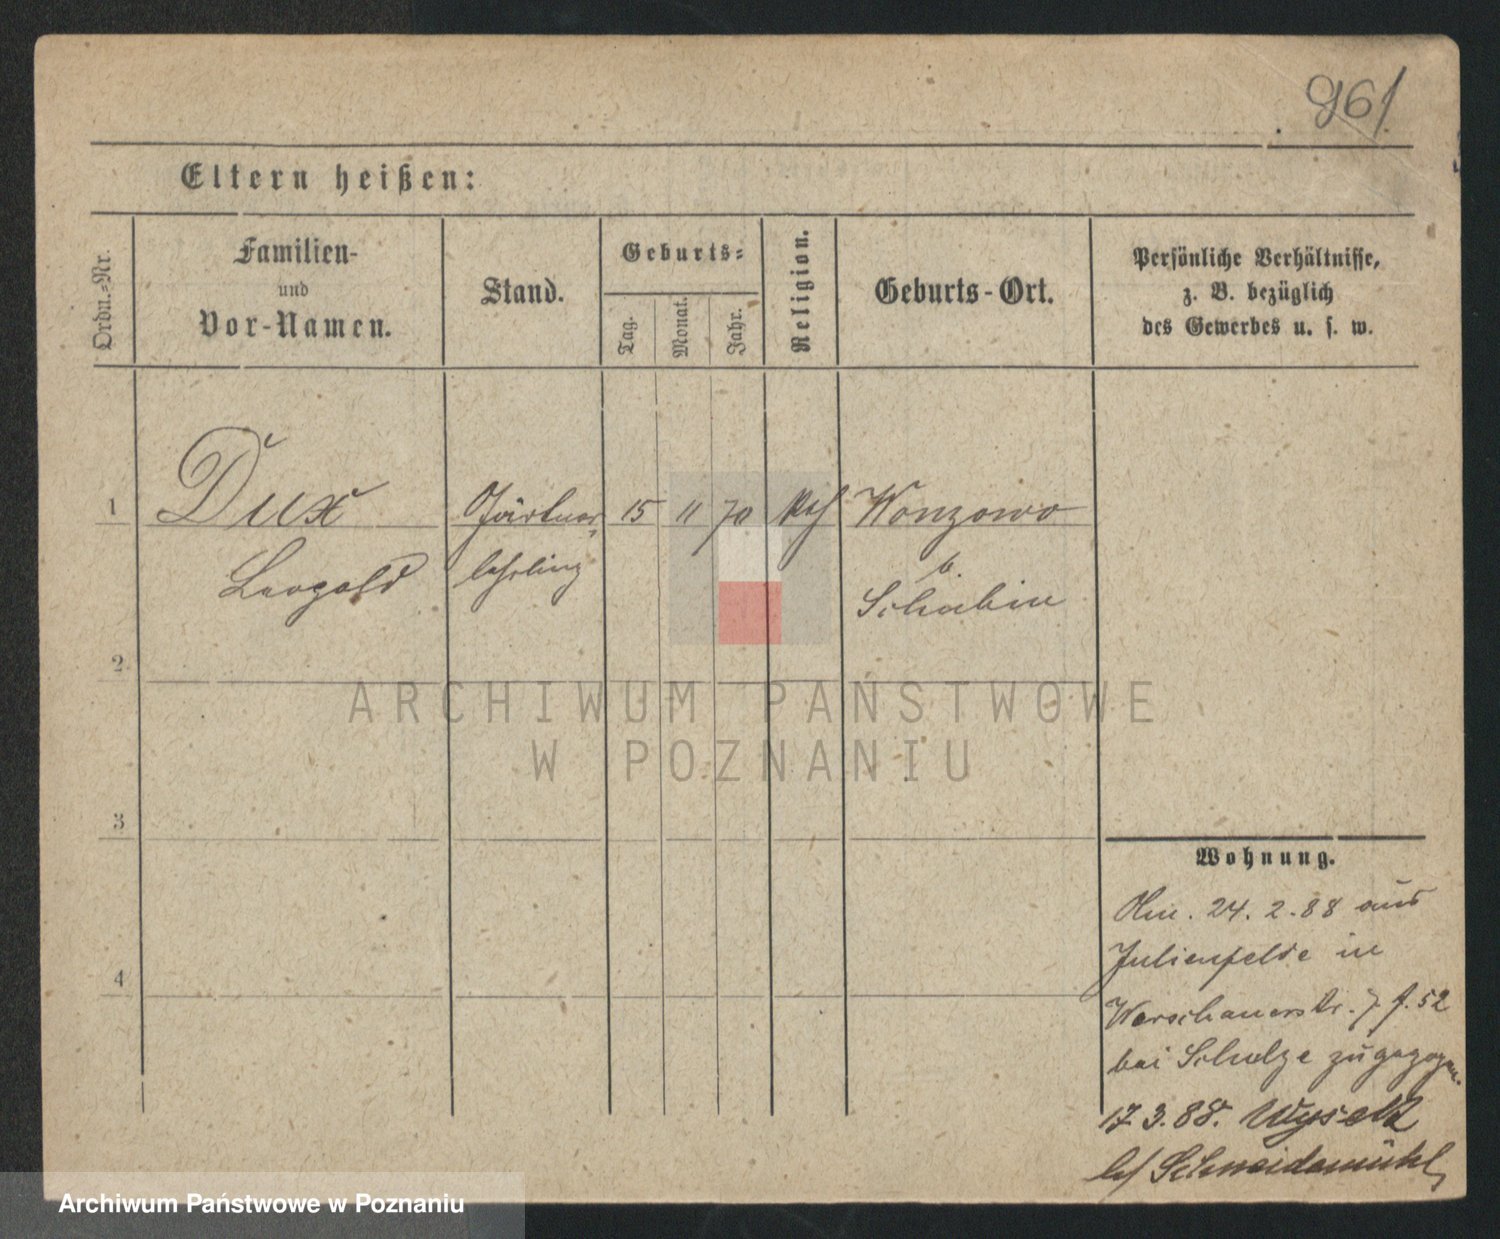 961
Eltern heißen:
Ordn.-Nr.
Familien-
und
Vor-Namen.
Stand.
Geburts-
Tag.
Monat.
Jahr.
Religion.
Geburts-Ort.
Persönliche Verhältnisse,
z. B. bezüglich
des Gewerbes u. s. w.
1 Dux Gärtner- 15 11 70 Wonzowo
Leopold lehrling b.
Schubin
2
3
4
ARCHIWUM PAŃSTWOWE
W POZNANIU
Wohnung.
24. 2. 88 aus
Julienfelde in
Warschauerstr. 7 f. 52
bei Schulze zugezogen.
17.3.88.
Schneidemühl
Archiwum Państwowe w Poznaniu